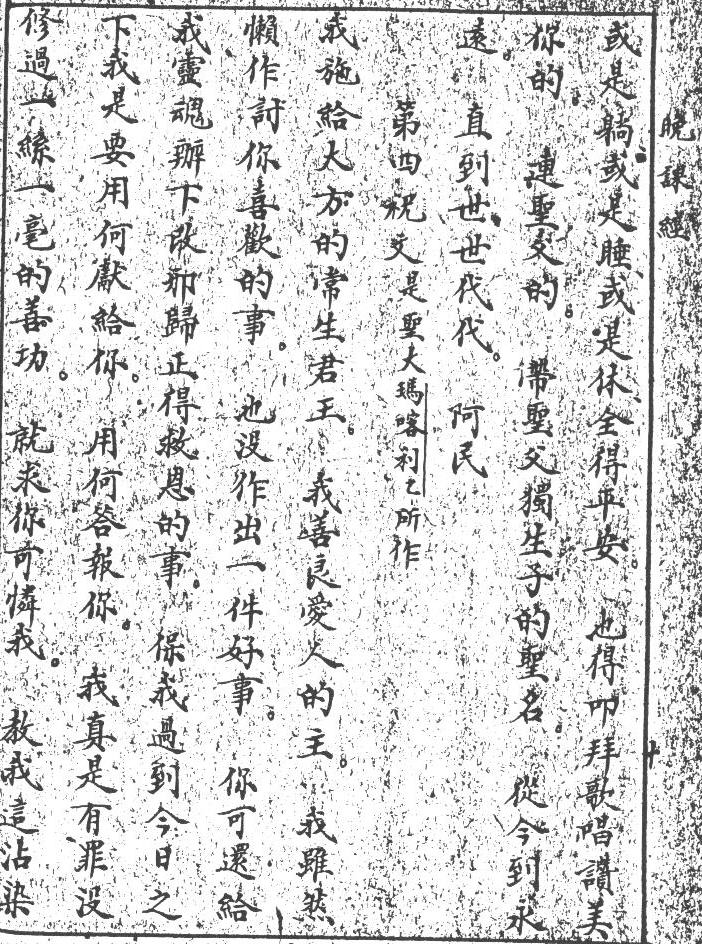 晚課經
或是躺或是睡、或是休、全得平安。也得叩拜歌唱讚美
你的。連聖父的。帶聖父獨生子的聖名。從今到永
遠。直到世世代代。阿民
第四祝文是聖大瑪喀利乙所作
我施給大方的常生君王。我善良愛人的主。我雖然
懶作討你喜歡的事。也没作出一件好事。你可還給
我靈魂辦下改邪歸正得救恩的事。保我過到今日之
下我是要用何獻給你。用何答報你。我真是有罪没
修過一絲一毫的善功。就求你可憐我。教我這沾染